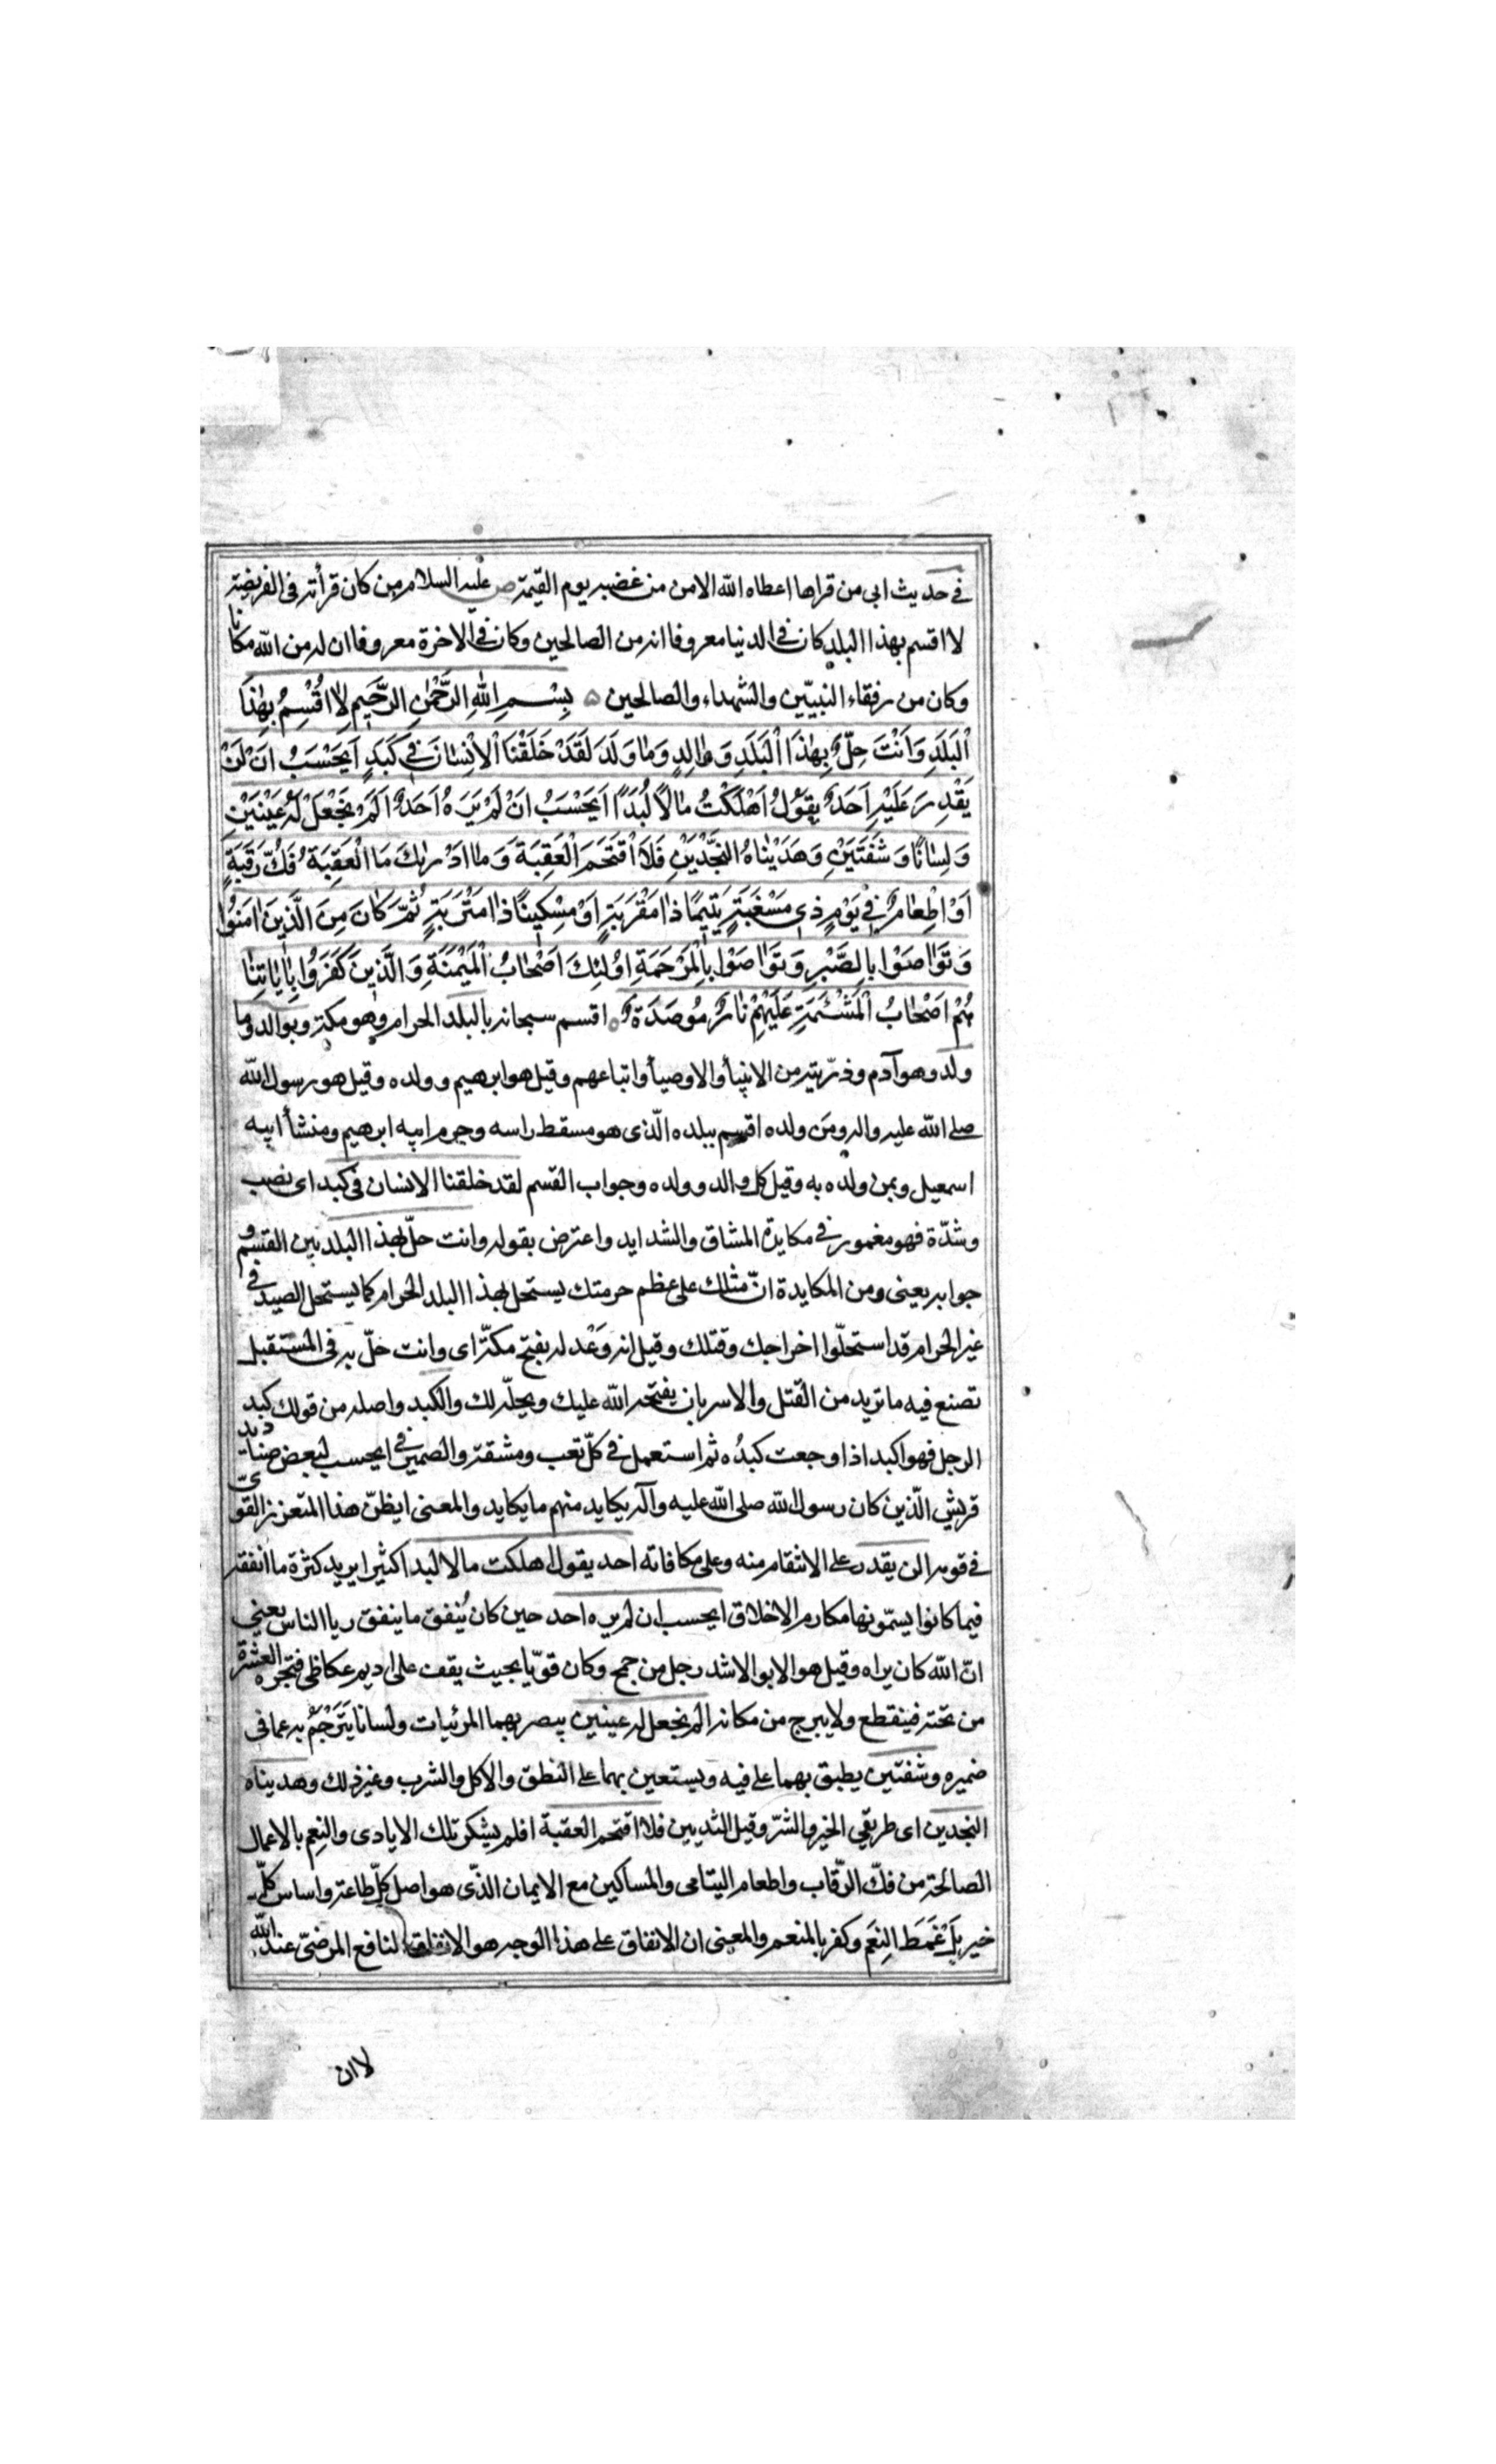 في حديث ابي من قراها اعطاه الله الامن من غضبه يوم القيمة ص عليه السلام من كان قرأته في الفريضة
لا اقسم بهذا البلد كان في الدنيا معروفا انه من الصالحين وكان في الاخرة معروفا ان له من الله مكانا
وكان من رفقاء النبيّين والشهداء والصالحين ۵ بِسْمِ اللهِ الرَّحْمٰنِ الرَّحيمِ لٰا اُقْسِمُ بِهٰذَا
اْلبَلَدِ وَاَنْتَ حِلٌّ بِهٰذَا اْلبَلَدِ وَوٰالِدٍ وَمٰا وَلَدَ لَقَدْ خَلَقْنَا اْلاِنْسٰانَ في كَبَدٍ اَيَحْسَبُ اَنْ لَنْ
يَقْدِرَ عَلَيْهِ اَحَدٌ يَقُولُ اَهْلَكْتُ مٰالًا لُبَدًا اَيَحْسَبُ اَنْ لَمْ يَرَهُ اَحَدٌ اَلَمْ نَجْعَلْ لَهُ عَيْنَيْنِ
وَلِسٰانًا وَشَفَتَيْنِ وَهَدَيْنٰاهُ النَّجْدَيْنِ فَلَا اقْتَحَمَ اْلعَقَبَةَ وَمٰا اَدْرٰيكَ مَا اْلعَقَبَةُ فَكُّ رَقَبَةٍ
اَوْ اِطْعٰامٌ في يَوْمٍ ذي مَسْغَبَةٍ يَتيمًا ذٰا مَقْرَبَةٍ اَوْ مِسْكينًا ذٰا مَتْرَبَةٍ ثُمَّ كٰانَ مِنَ الَّذينَ اٰمَنُوا
وَتَوٰاصَوْا بِالصَّبْرِ وَتَوٰاصَوْا بِالْمَرْحَمَةِ اُولٰئِكَ اَصْحٰابُ اْلمَيْمَنَةِ وَالَّذينَ كَفَرُوا بِاٰيٰاتِنٰا
هُمْ اَصْحٰابُ اْلمَشْئَمَةِ عَلَيْهِمْ نٰارٌ مُوصَدَةٌ ۵ اقسم سبحانه بالبلد الحرام وهو مكة وبوالد وما
ولد وهو آدم وذرّيته من الانبيأ والاوصيأ واتباعهم وقيل هو ابرهيم وولده وقيل هو رسول الله
صلى الله عليه واله ومن ولده اقسم ببلده الّذى هو مسقط راسه وحرم ابيه ابرهيم ومنشأ ابيه
اسمعيل وبمن ولده به وقيل كل والد وولده وجواب القسم لقد خلقنا الانسان في كبد اى نصب
وشدّة فهو مغمور في مكايدة المشاق والشدايد واعترض بقوله وانت حلّ بهذا البلد بين القسم و
جوابه يعنى ومن المكايدة انّ مثلك على عظم حرمتك يستحل بهذا البلد الحرام كما يستحل الصيد في
غير الحرام قد استحلّوا اخراجك وقتلك وقيل انه وَعْد له بفتح مكّة اى وانت حلّ به في المستقبل
تصنع فيه ما تريد من القتل والاسر بان يفتحه الله عليك ويحلّه لك والكبد واصله من قولك كبد
الرجل فهو اكبد اذا وجعت كبدُه ثم استعمل في كلّ تعب ومشقة والضمير في ايحسب لبعض صناديد
قريش الّذين كان رسول الله صلى الله عليه وآله يكايد منهم ما يكايد والمعنى ايظنّ هذا المتعزز القوىّ
في قومه ان لن يقدر على الانتقام منه وعلى مكافاته احد يقول اهلكت مالا لبدا اكثيرا يريد كثرة ما انفقه
فيما كانوا يسمّونها مكارم الاخلاق ايحسب ان لم يره احد حين كان يُنفق ما ينفق ريا الناس يعنى
انّ الله كان يراه وقيل هو الابو الاشد رجل من جمح وكان قوّيا بحيث يقف على اديم عكاظى فتجره العشرة
من تحته فينقطع ولا يبرح من مكانه الم نجعل له عينين يبصر بهما المرئيات ولسانا يَتَرْجَمُ به عما في
ضميره وشفتين يطبق بهما على فيه ويستعين بهما على النطق والاكل والشرب وغير ذلك وهديناه
النجدين اى طريقي الخير والشرّ وقيل الثديين فلا اقتحم العقبة افلم يشكر تلك الايادى والنِعم بالاعمال
الصالحة من فكّ الرّقاب واطعام اليتامى والمساكين مع الايمان الذّى هو اصل كلّ طاعة واساس كلّ
خير بَلْ غَمَطَ النِعَم وكفر بالمنعم والمعنى ان الانفاق على هذا الوجه هو الانفاق النافع المرضىّ عند الله
لا ان